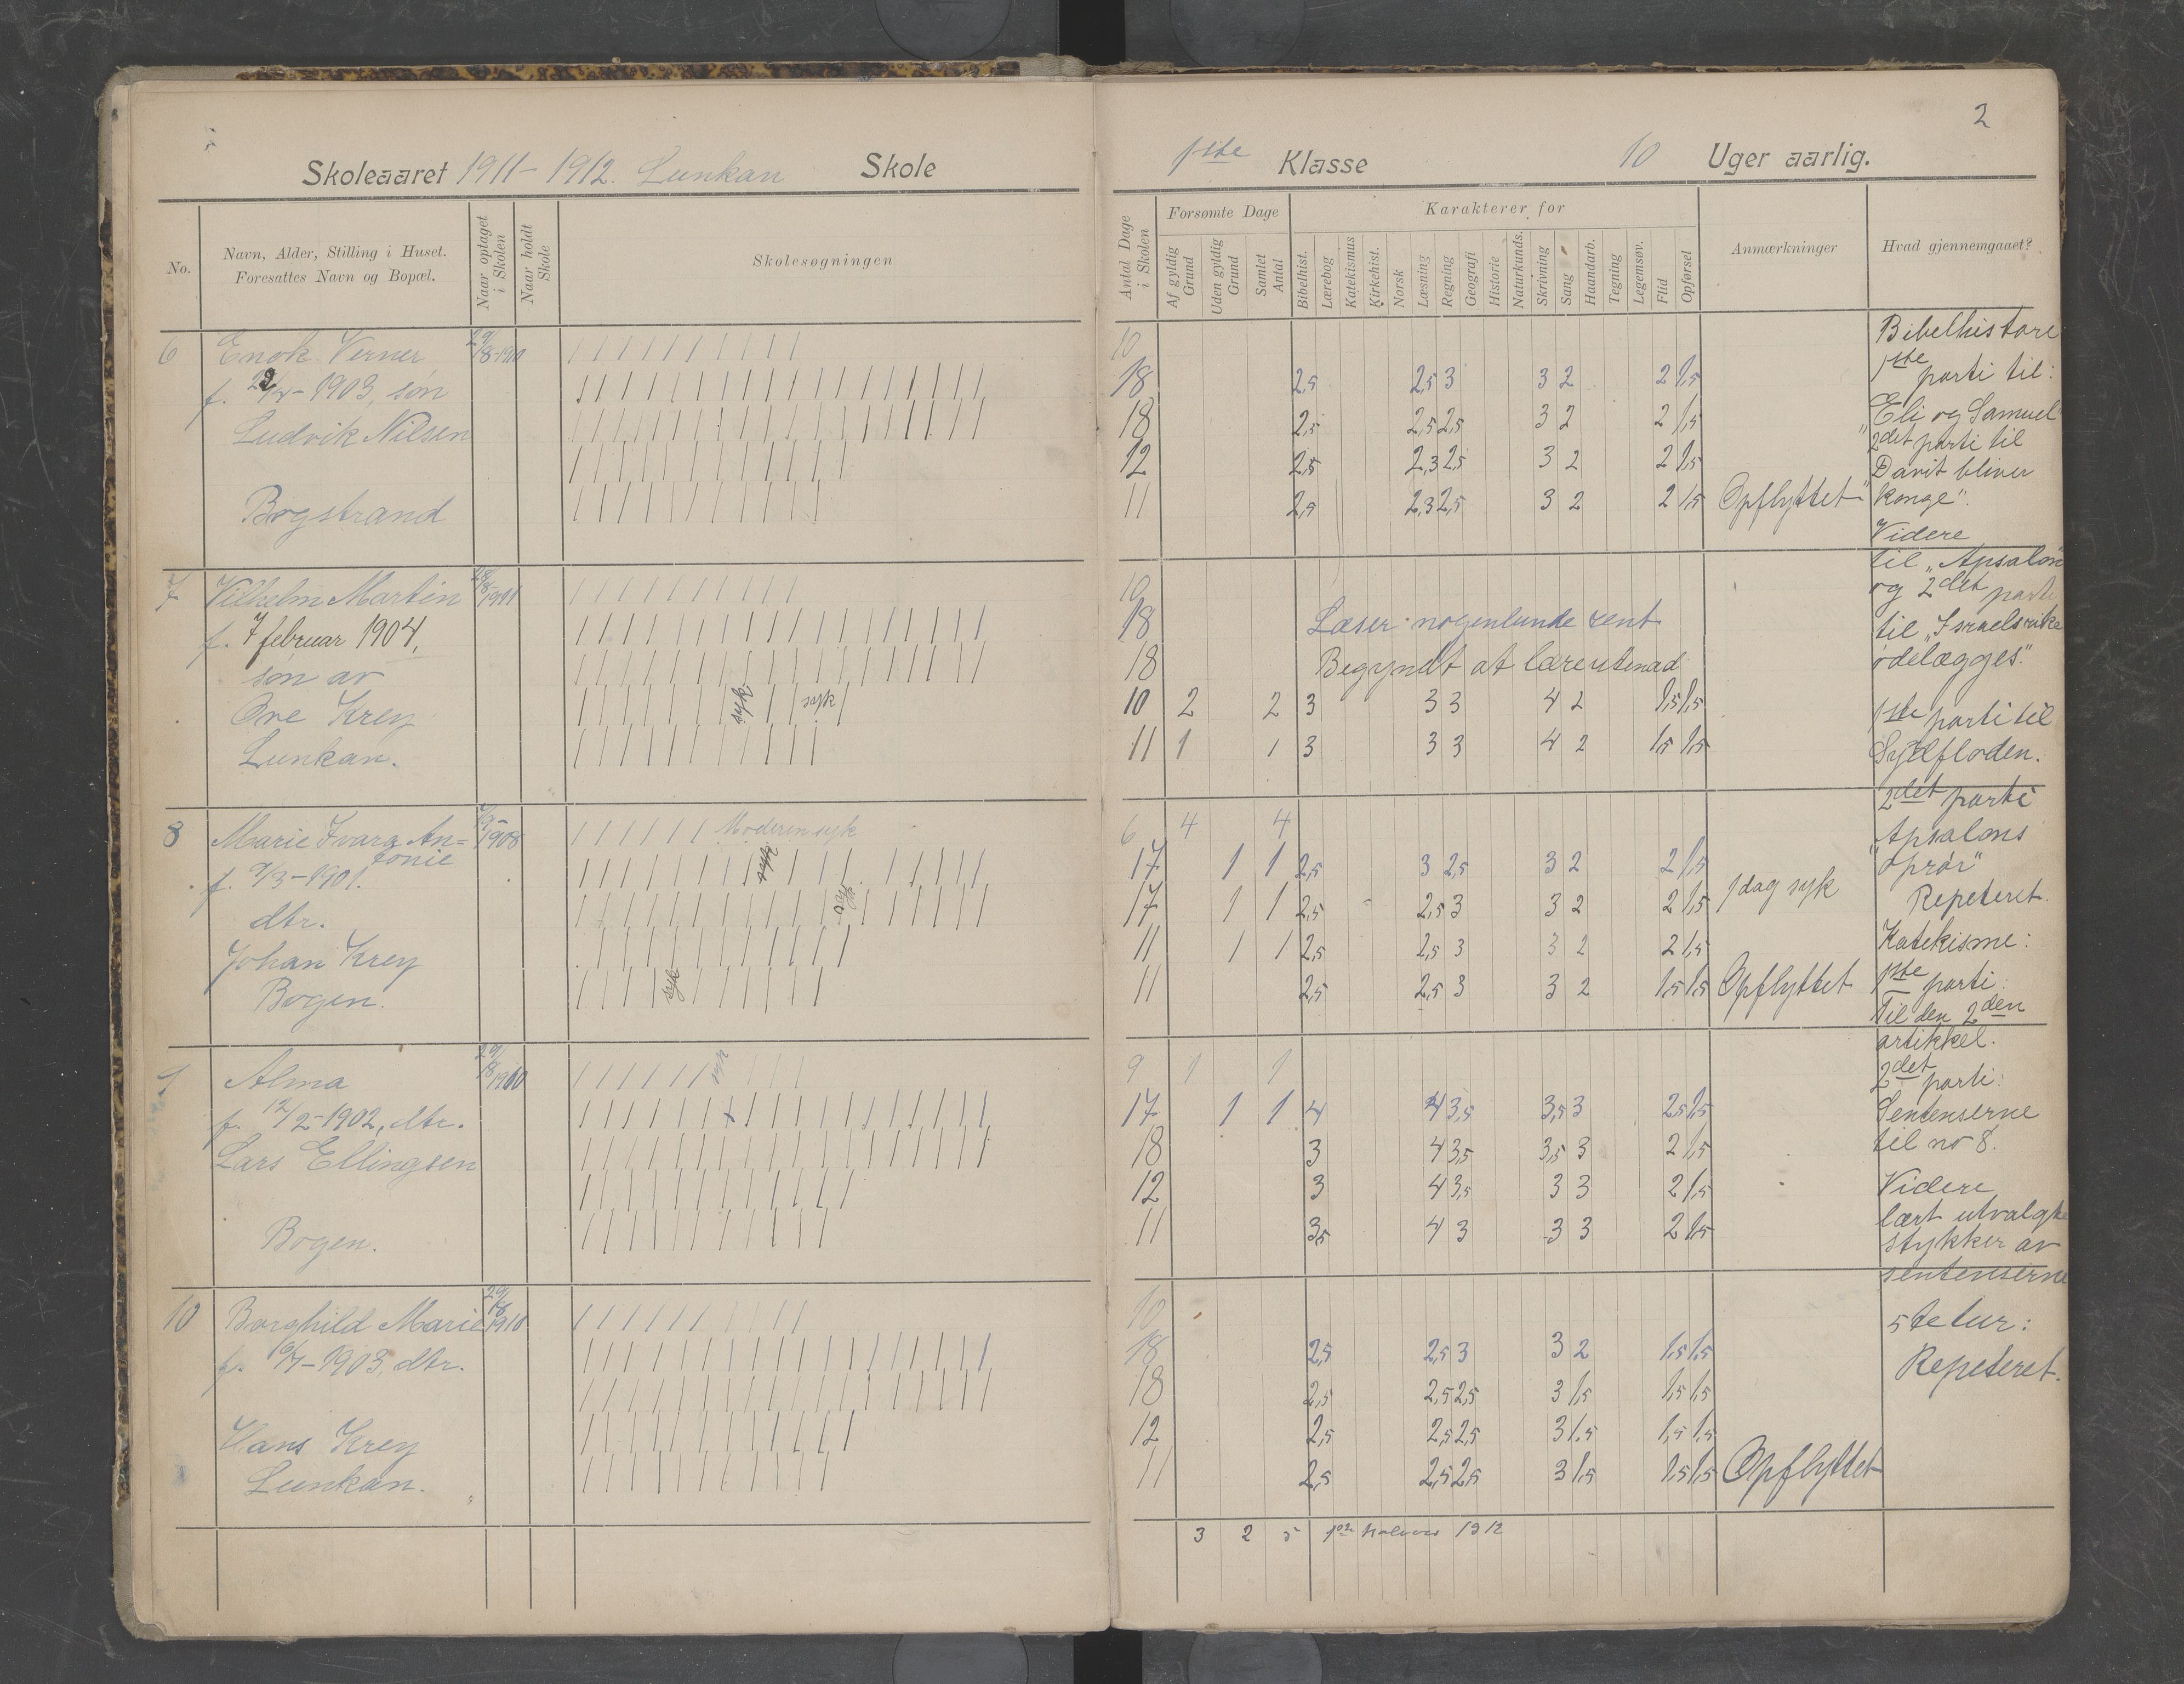 2
Skoleaaret 1911-1912. Lunkan Skole
1ste Klasse 10 Uger aarlig.
No.
Navn, Alder, Stilling i Huset.
Foresattes Navn og Bopæl.
Naar optaget i Skolen
Naar holdt Skole
Skolesøgningen
Antal Dage i Skolen
Forsømte Dage
Af gyldig Grund
Uden gyldig Grund
Samlet Antal
Karakterer for
Bibelhist.
Lærebog
Katekismus
Kirkehist.
Norsk
Læsning
Regning
Geografi
Historie
Naturkunds.
Skrivning
Sang
Haandarb.
Tegning
Legemsøv.
Flid
Opførsel
Anmærkninger
Hvad gjennemgaaet?
6 Enok Verner
1903, søn
Ludvik Nilsen
Bogstrand
10
18 2,5 2,5 3 3 2 2 1,5
18 2,5 2,5 2,5 3 2 2 1,5
12 2,5 2,3 2,5 3 2 2 1,5
11 2,5 2,3 2,5 3 2 2 1,5 Opflyttet
7 Vilhelm Martin
f. 7 februar 1904,
søn av
Ove Krey
Lunkan.
syk syk
10
18 Læser nogenlunde rent
18 Begyndt at lære utenad
10 2 2 3 3 3 4 2 1,5 1,5
11 1 1 3 3 3 4 2 1,5 1,5
8 Marie Ivara An=
tonie
f. 9/3-1901.
dtr.
Johan Krey
Bogen.
1908
Moderen syk
syk
syk
syk
6 4 4
17 1 1 2,5 3 2,5 3 2 2 1,5
17 1 1 2,5 2,5 3 3 2 2 1,5 1 dag syk
11 1 1 2,5 2,5 3 3 2 2 1,5
11 2,5 2,5 3 3 2 1,5 1,5 Opflyttet
Alma
f. 12/2-1902, dtr.
Lars Ellingsen
Bogen.
syk
9 1 1
17 1 1 4 4 3,5 3,5 3 2,5 1,5
18 3 4 3,5 3,5 3 2 1,5
12 3 4 3,5 3 3 2 1,5
11 3,5 4 3 3 3 2 1,5
10 Borghild Marie
1903, dtr.
Hans Krey
Lunkan.
29/8 1910
10
18 2,5 2,5 3 3 2 1,5 1,5
18 2,5 2,5 2,5 3 1,5 1,5 1,5
12 2,5 2,5 2,5 3 1,5 1,5 1,5
11 2,5 2,5 2,5 3 1,5 1,5 1,5 Opflyttet
3 2 5 1912
Bibelhistorie
1ste parti til:
"Eli og Samuel"
2det parti til
"Davit bliver
konge".
Videre
til "Apsalon"
og 2det parti
til "Israelsrike
ødelægges".
1ste parti til
Syndfloden.
2det parti
"Apsalons
oprør"
Repeteret.
Katekisme:
1ste parti:
Til den 2den
artikkel.
2det parti:
Sentenserne
til no 8.
Videre
lært utvalgte
stykker av
sentenserne
5te tur:
Repeteret.